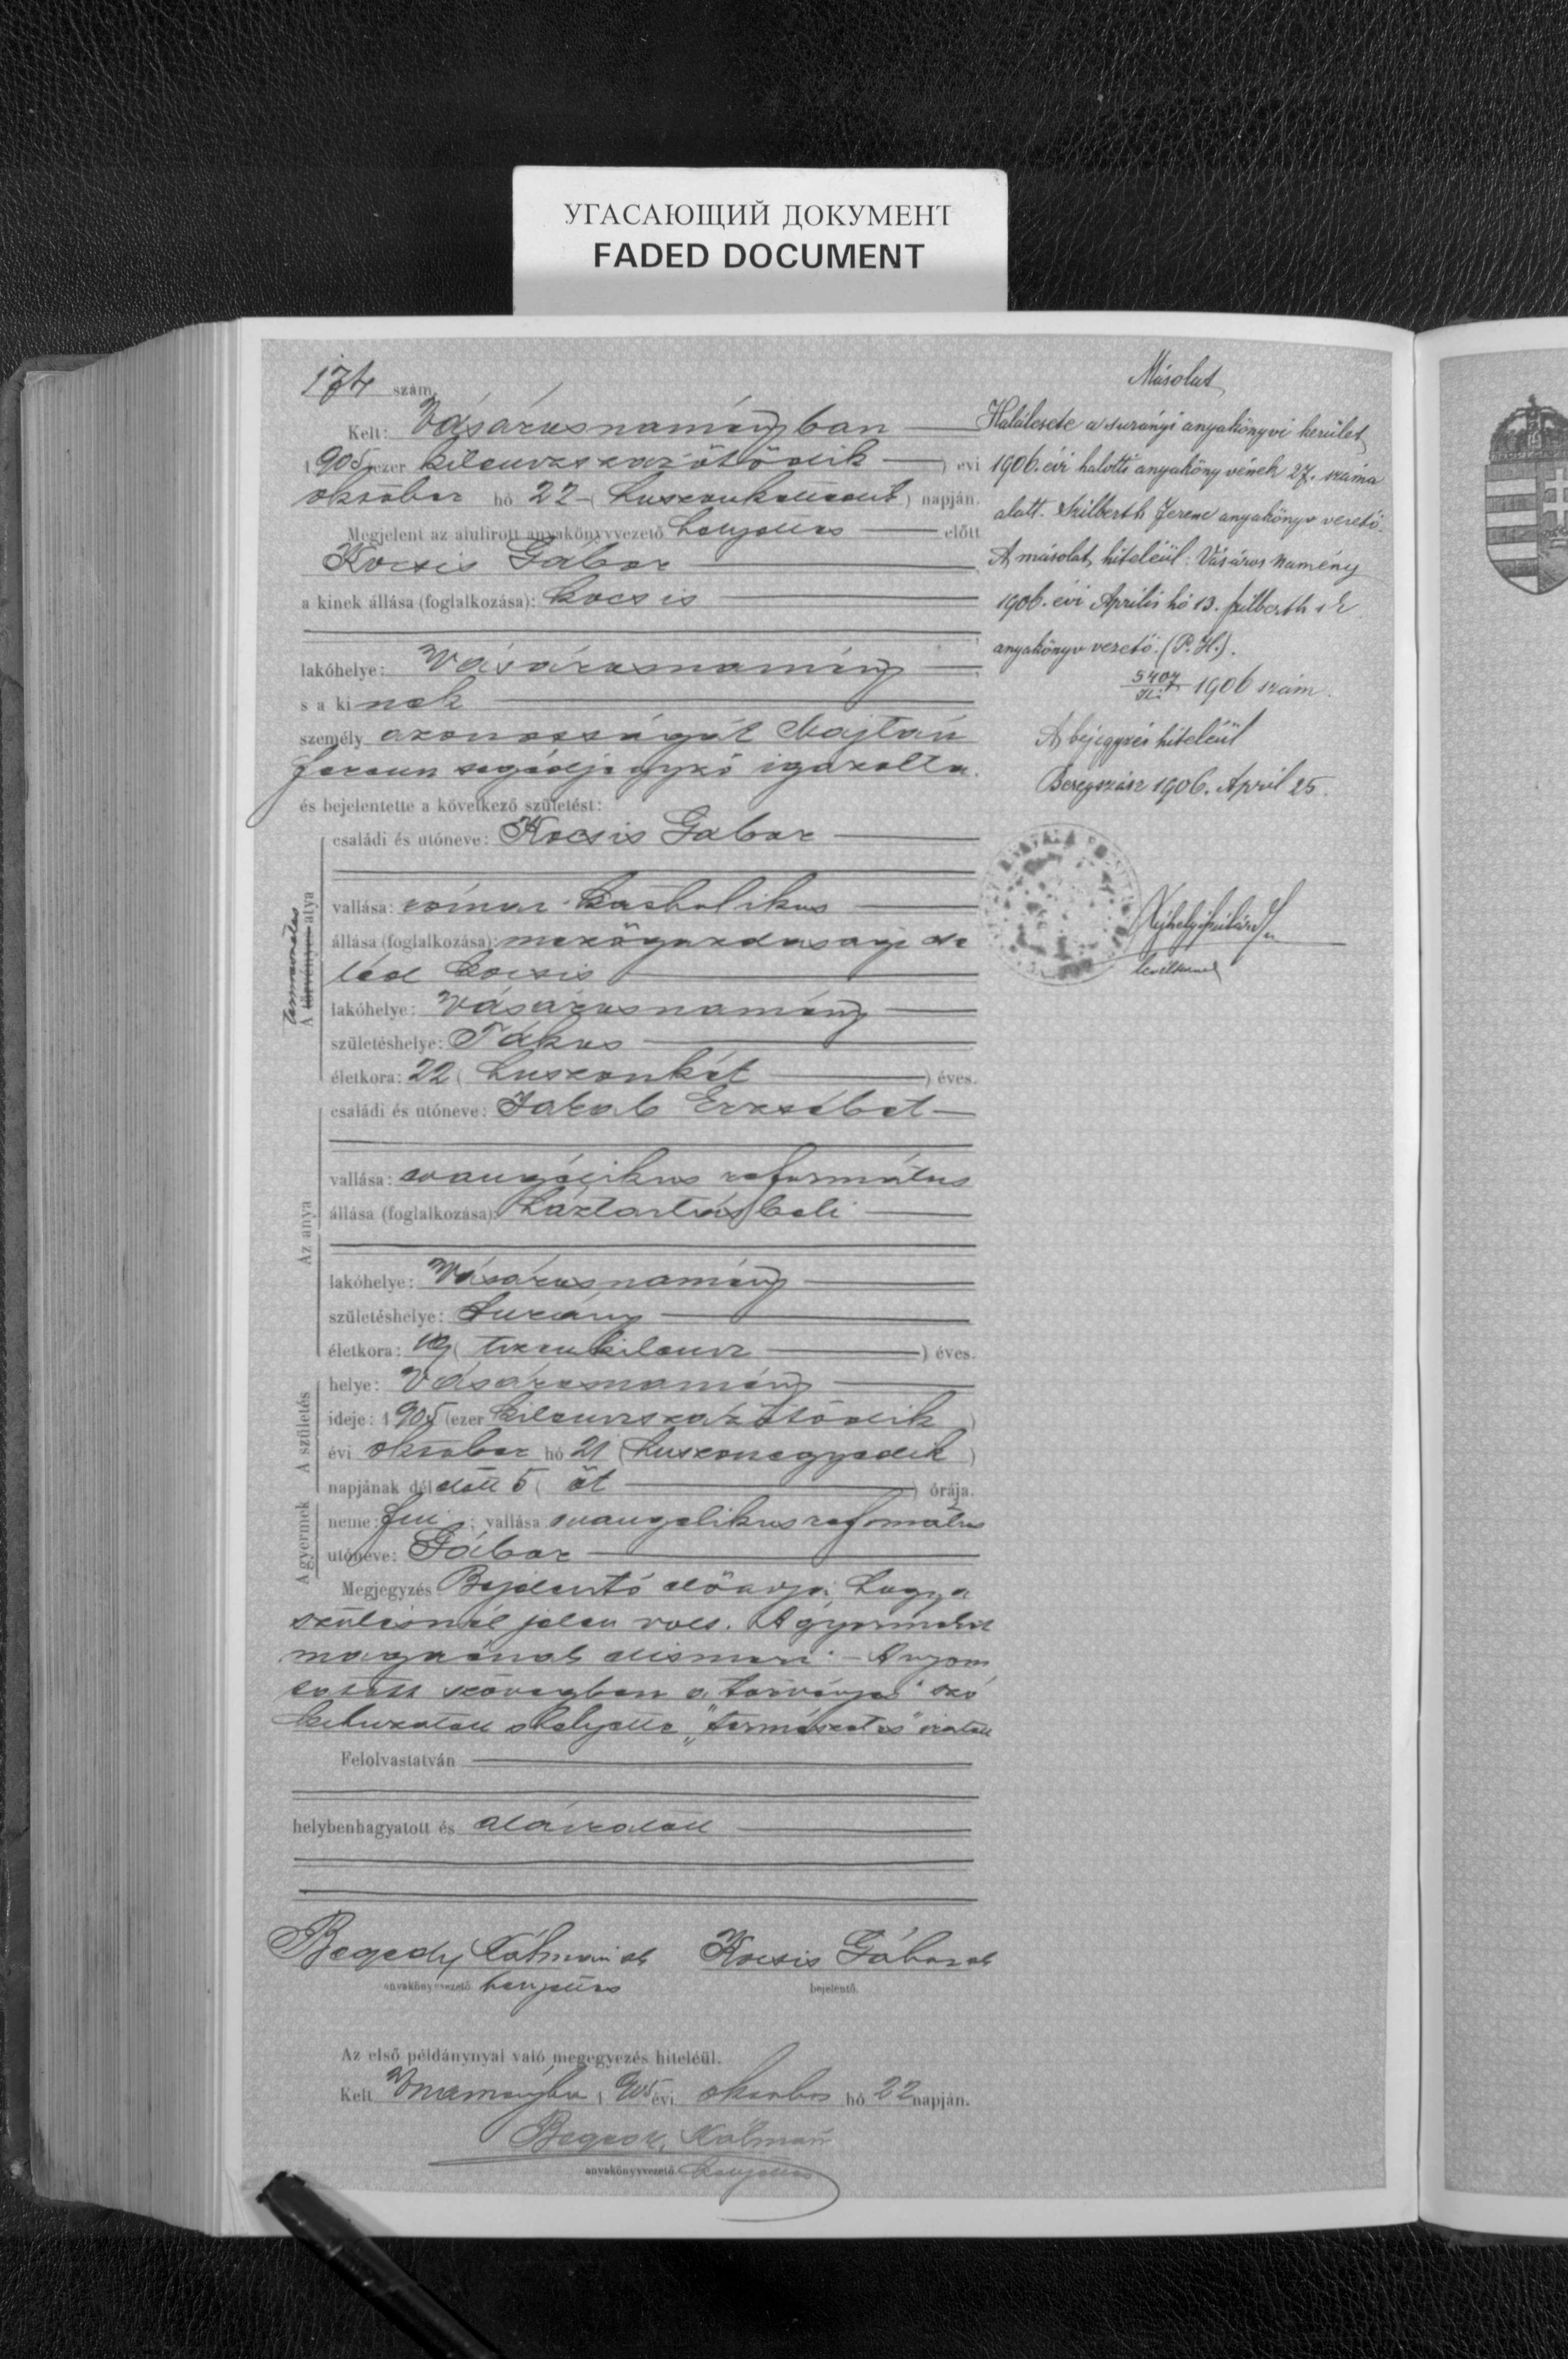 УГАСАЮЩИЙ ДОКУМЕНТ
FADED DOCUMENT
174 szám.
Kelt: Vásárosnaményban
1905 (ezer kilenczszázötödik ) évi
október hó 22 ( huszonkettedik ) napján.
Megjelent az alulirott anyakönyvvezető helyettes előtt
Kocsis Gábor
a kinek állása (foglalkozása): kocsis
lakóhelye: Vásárosnamény
s a kinek
személy azonosságát Majtán
Ferencz segédjegyző igazolta.
és bejelentette a következő születést:
természetes
A törvényes atya
családi és utóneve: Kocsis Gábor
vallása: római katholikus
állása (foglalkozása): mezőgazdasagi cse
léd kocsis
lakóhelye: Vásárosnamény
születéshelye: Tákos
életkora: 22 ( huszonkét ) éves.
Az anya
családi és utóneve: Jakab Erzsébet
vallása: evangélikus református
állása (foglalkozása): háztartásbeli
lakóhelye: Vásárosnamény
születéshelye: Surány
életkora: 19 ( tizenkilencz ) éves.
A születés
helye: Vásárosnamény
ideje: 1905 (ezer kilenczszázötödik )
évi október hó 21 ( huszonegyedik )
napjának délelőtt 5 ( öt ) órája.
A gyermek
neme: fiu ; vallása evangelikus református
utóneve: Gábor
Megjegyzés Bejelentő előadja hogy a
szülésnél jelen volt. A gyermeket
magáénak elismeri. – A nyom
tatott szövegben a „törvényes" szó
kihuzatott s helyette „természetes" iratott
Felolvastatván
helybenhagyatott és aláiratott
Begedy Kálmán sk Kocsis Gábor sk
anyakönyvvezető helyettes bejelentő.
Az első példánynyal való megegyezés hiteléül.
Kelt Vnaményba 1905 évi október hó 22 napján.
Begedy Kálmán
anyakönyvvezető helyettes
Másolat
Halálesete a surányi anyakönyvi kerület
1906. évi halotti anyakönyvének 27. száma
alatt. Szilberth Ferenc anyakönyvvezető.
A másolat hiteléül: Vásárosnamény
1906. évi Április hó 13. Szilberth
anyakönyvvezető. (P. H.).
5407 1906 szám.
A bejegyzés hiteléül
Beregszász 1906. April 25.
levéltárnok